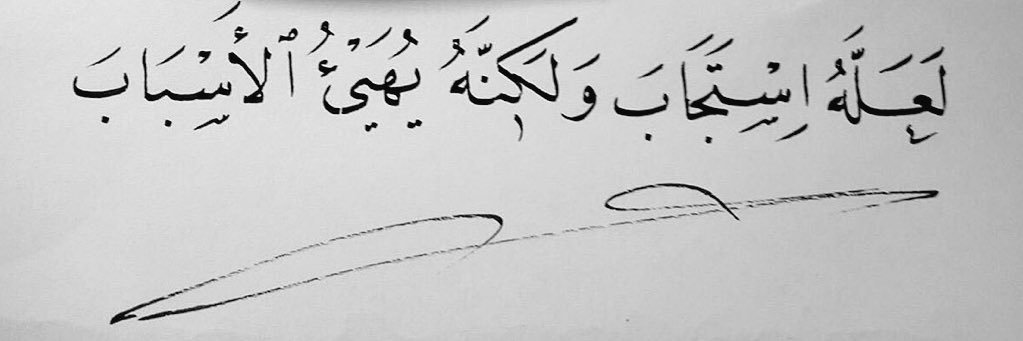 لَعَلَّهُ اِسْتَجَابَ وَلَكِنَّهُ يُهَيْئُ ٱلأَسْبَابَ